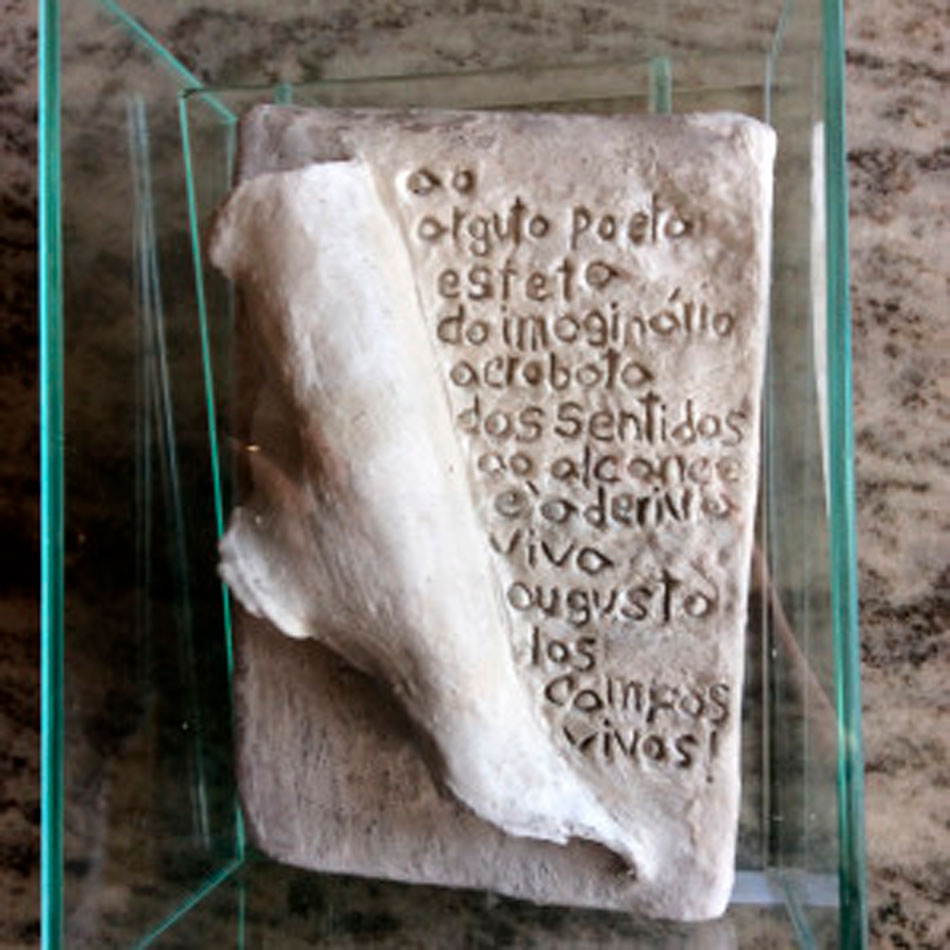 ao
arguto poeta
esteta
do imaginário
acrobata
dos sentidos
ao alcance
e à deriva
viva
augusto
dos
campos
vivas!